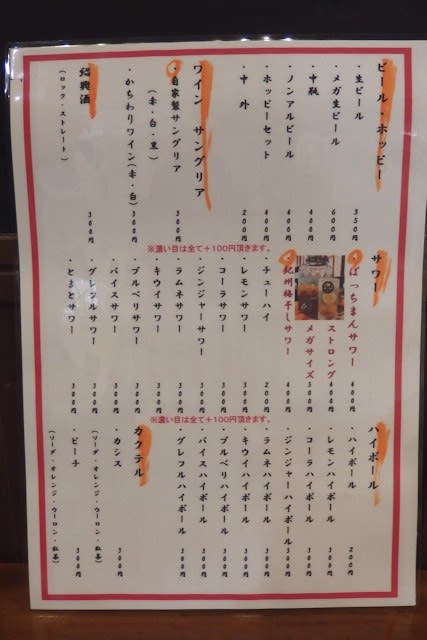 ビール・ホッピー
・生ビール 350円
・メガ生ビール 600円
・中瓶 400円
・ノンアルビール 400円
・ホッピーセット 400円
・中 外 200円
ワイン サングリア
・自家製サングリア 300円
(赤・白・黒)
・かちわりワイン(赤・白) 300円
紹興酒 300円
(ロック・ストレート)
※濃い目は全て+100円頂きます。
サワー
・ばっちまんサワー 400円
ストロング 400円
メガサイズ 500円
・紀州梅干しサワー 400円
・チューハイ 200円
・レモンサワー 300円
・コーラサワー 300円
・ジンジャーサワー 300円
・ラムネサワー 300円
・キウイサワー 300円
・ブルベリサワー 300円
・バイスサワー 300円
・グレフルサワー 300円
・とまとサワー 300円
※濃い目は全て+100円頂きます。
ハイボール
・ハイボール 200円
・レモンハイボール 300円
・コーラハイボール 300円
・ジンジャーハイボール 300円
・ラムネハイボール 300円
・キウイハイボール 300円
・ブルベリハイボール 300円
・バイスハイボール 300円
・グレフルハイボール 300円
カクテル
・カシス 300円
(ソーダ・オレンジ・ウーロン・紅茶)
・ピーチ 300円
(ソーダ・オレンジ・ウーロン・紅茶)